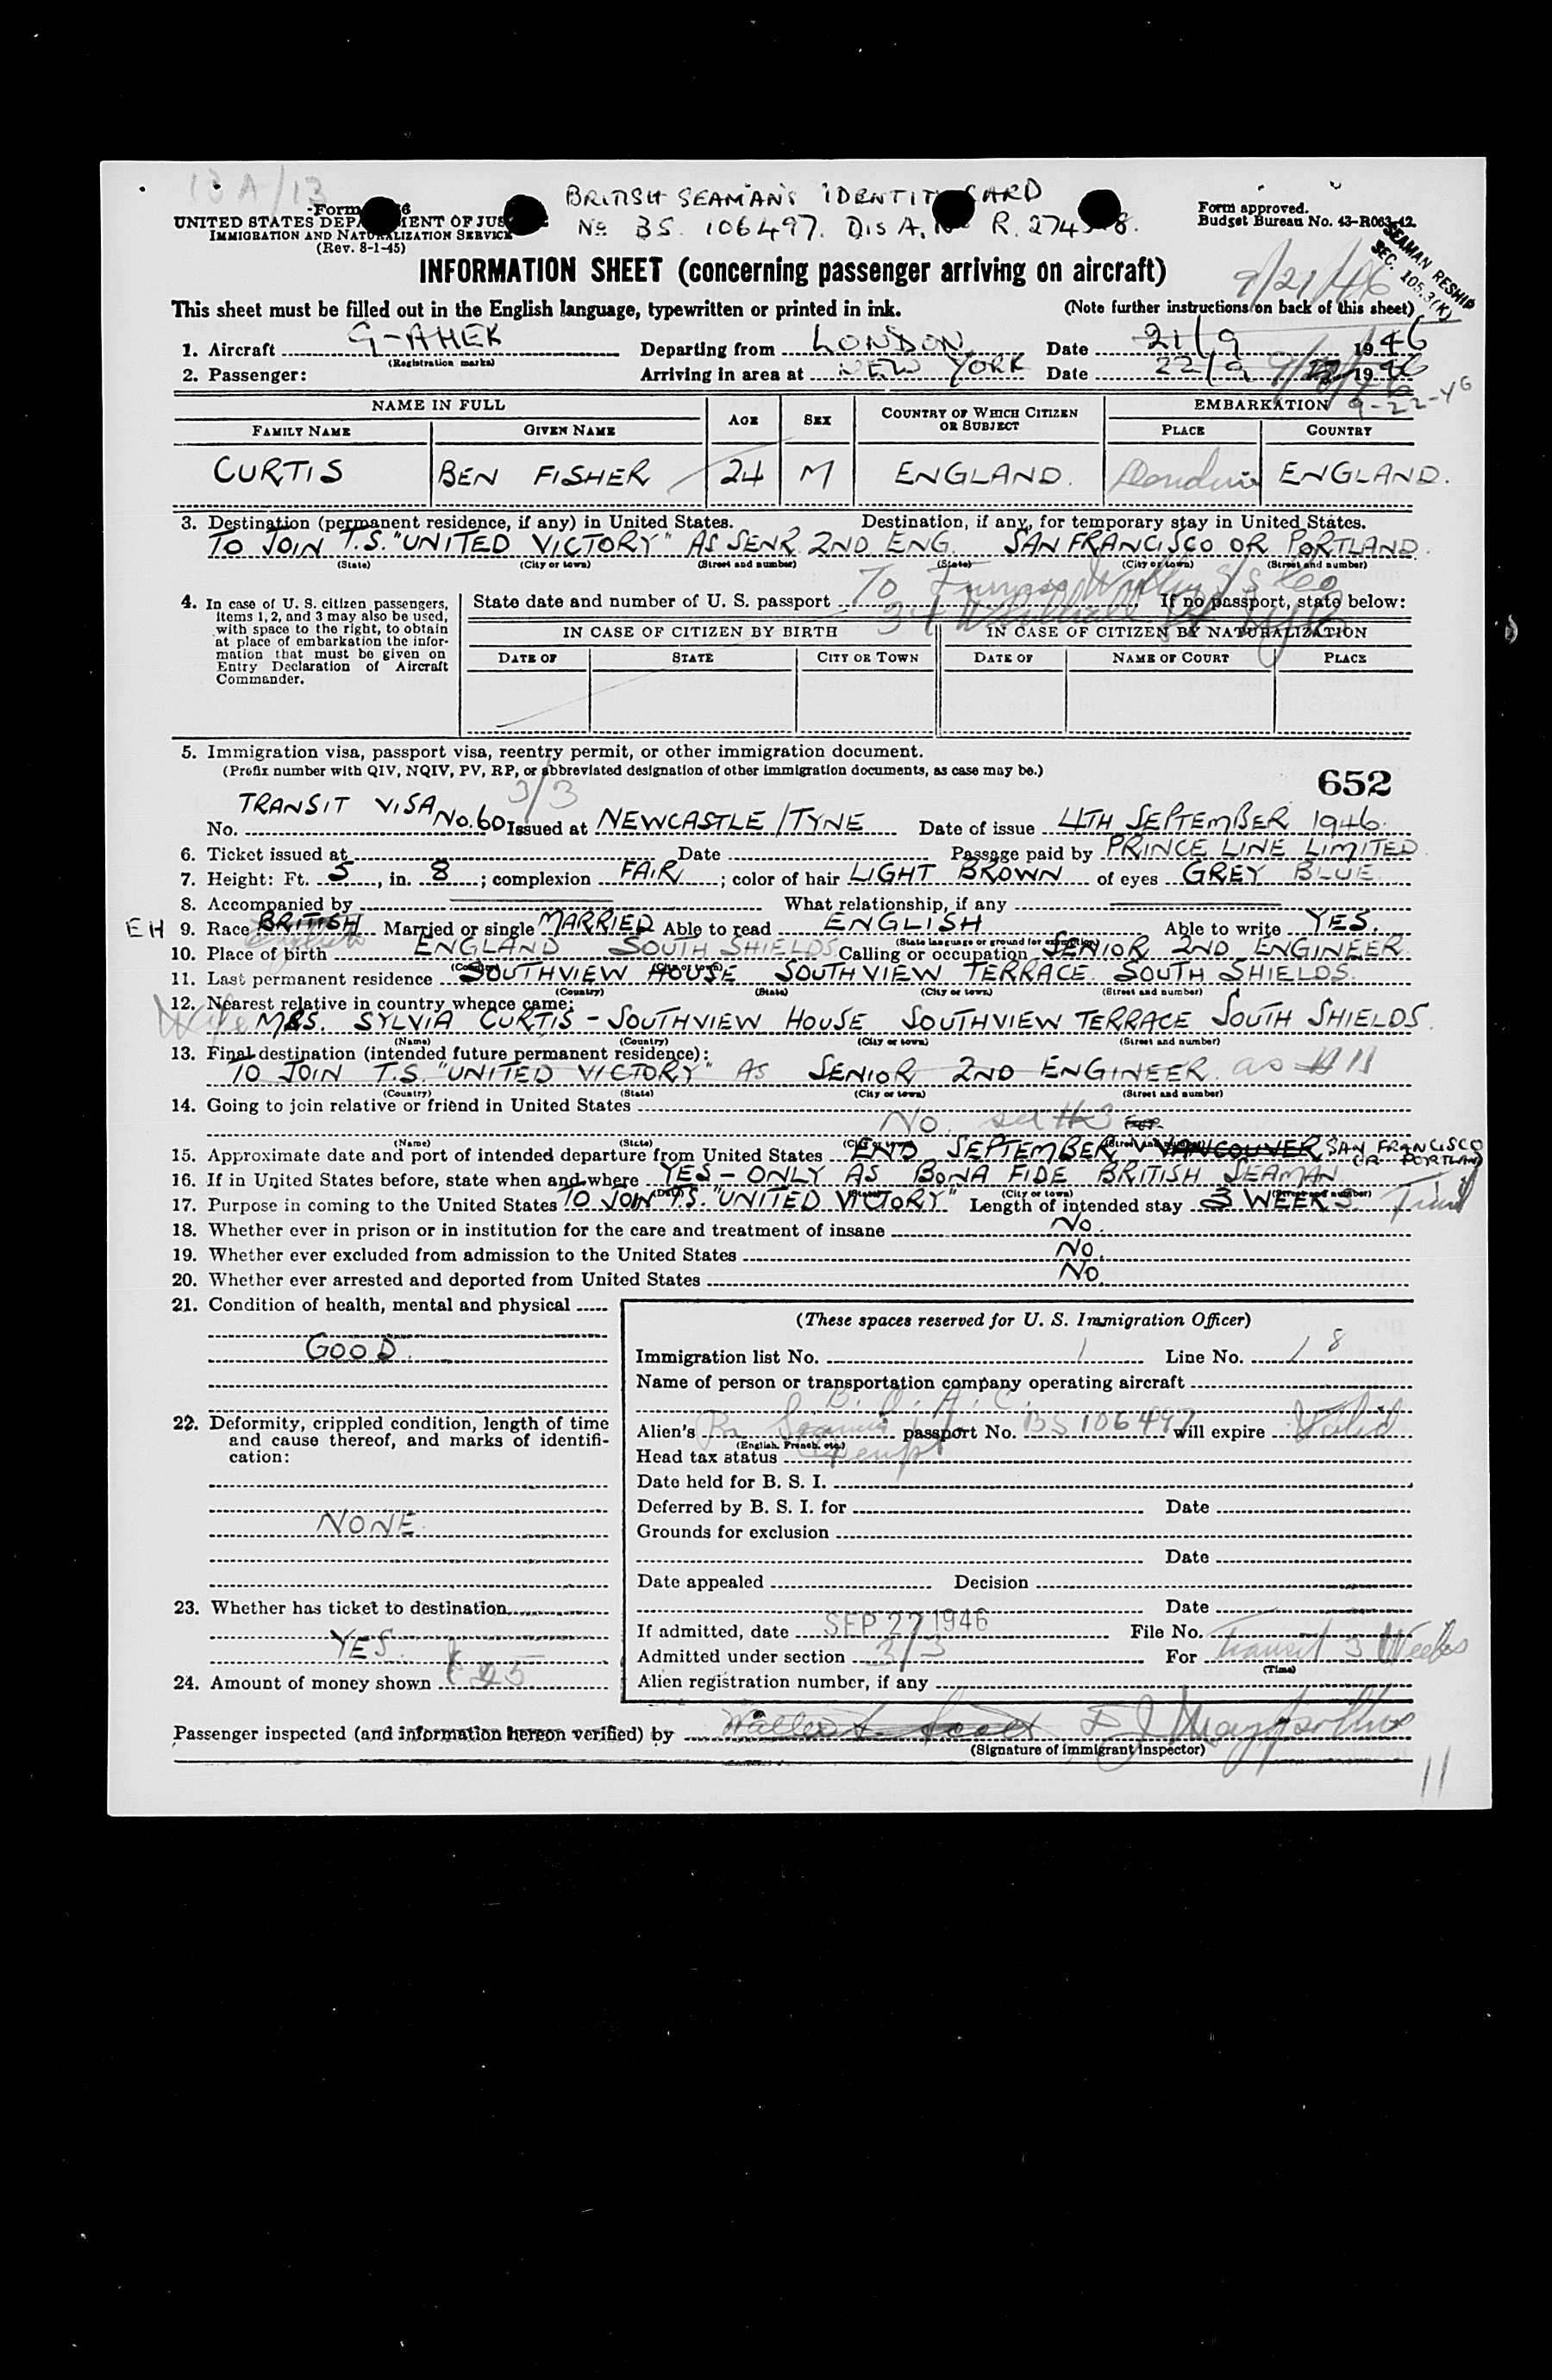 13A/13
BRITISH SEAMAN'S IDENTIT CARD
No BS. 106497. DIS A. No R. 274 8.
Form 6
UNITED STATES DEPA MENT OF JUS
IMMIGRATION AND NATURALIZATION SERVICE
(Rev. 8-1-45)
Form approved.
Budget Bureau No. 43-R063-42.
SEAMAN RESHIP
SEC. 105.3(K)
INFORMATION SHEET (concerning passenger arriving on aircraft)
9/21/46
This sheet must be filled out in the English language, typewritten or printed in ink. (Note further instructions on back of this sheet)
1. Aircraft G-AHEK Departing from LONDON Date 21/9 1946
(Registration marks)
2. Passenger: Arriving in area at NEW YORK Date 22/9 1946
9-22-46
NAME IN FULL AGE SEX COUNTRY OF WHICH CITIZEN OR SUBJECT EMBARKATION
FAMILY NAME GIVEN NAME PLACE COUNTRY
CURTIS BEN FISHER 24 M ENGLAND. London ENGLAND.
3. Destination (permanent residence, if any) in United States. Destination, if any, for temporary stay in United States.
TO JOIN T.S. "UNITED VICTORY" AS SENR. 2ND ENG. SAN FRANCISCO OR PORTLAND.
(State) (City or town) (Street and number) (State) (City or town) (Street and number)
To Furness Withy S/S Co
34 Whitehall St NYC
4. In case of U. S. citizen passengers, items 1, 2, and 3 may also be used, with space to the right, to obtain at place of embarkation the information that must be given on Entry Declaration of Aircraft Commander.
State date and number of U. S. passport If no passport, state below:
IN CASE OF CITIZEN BY BIRTH IN CASE OF CITIZEN BY NATURALIZATION
DATE OF STATE CITY OR TOWN DATE OF NAME OF COURT PLACE
5. Immigration visa, passport visa, reentry permit, or other immigration document.
(Prefix number with QIV, NQIV, PV, RP, or abbreviated designation of other immigration documents, as case may be.)
652
3/3
No. TRANSIT VISA No. 60 Issued at NEWCASTLE/TYNE Date of issue 4TH SEPTEMBER 1946.
6. Ticket issued at Date Passage paid by PRINCE LINE LIMITED
7. Height: Ft. 5, in. 8; complexion FAIR; color of hair LIGHT BROWN of eyes GREY BLUE
8. Accompanied by What relationship, if any
EH 9. Race BRITISH Married or single MARRIED Able to read ENGLISH Able to write YES.
English
(State language or ground for exemption)
10. Place of birth ENGLAND SOUTH SHIELDS Calling or occupation SENIOR 2ND ENGINEER.
(Country) (City or town)
11. Last permanent residence SOUTHVIEW HOUSE SOUTHVIEW TERRACE SOUTH SHIELDS.
(Country) (State) (City or town) (Street and number)
12. Nearest relative in country whence came:
Wife MRS. SYLVIA CURTIS - SOUTHVIEW HOUSE SOUTHVIEW TERRACE SOUTH SHIELDS.
(Name) (Country) (City or town) (Street and number)
13. Final destination (intended future permanent residence):
TO JOIN T.S. "UNITED VICTORY" AS SENIOR 2ND ENGINEER. as
(Country) (State) (City or town) (Street and number)
14. Going to join relative or friend in United States
No.
(Name) (State) (City or town) (Street and number)
15. Approximate date and port of intended departure from United States END SEPTEMBER VANCOUVER SAN FRANCISCO OR PORTLAND
16. If in United States before, state when and where YES - ONLY AS BONA FIDE BRITISH SEAMAN
(Date) (State) (City or town) (Street and number)
17. Purpose in coming to the United States TO JOIN T.S. "UNITED VICTORY" Length of intended stay 3 WEEKS
18. Whether ever in prison or in institution for the care and treatment of insane No.
19. Whether ever excluded from admission to the United States No.
20. Whether ever arrested and deported from United States No.
21. Condition of health, mental and physical
GOOD.
22. Deformity, crippled condition, length of time and cause thereof, and marks of identification:
NONE.
23. Whether has ticket to destination
YES.
24. Amount of money shown
(These spaces reserved for U. S. Immigration Officer)
Immigration list No. 1 Line No. 18
Name of person or transportation company operating aircraft
B. O. A. C.
Alien's Br Seamans passport No. BS 106497 will expire Valid
(English, French, etc.)
Head tax status Exempt
Date held for B. S. I.
Deferred by B. S. I. for Date
Grounds for exclusion
Date
Date appealed Decision
Date
If admitted, date SEP 22 1946 File No.
Admitted under section 3/3 For Transit 3 Weeks
(Time)
Alien registration number, if any
Passenger inspected (and information hereon verified) by
(Signature of immigrant inspector)
11